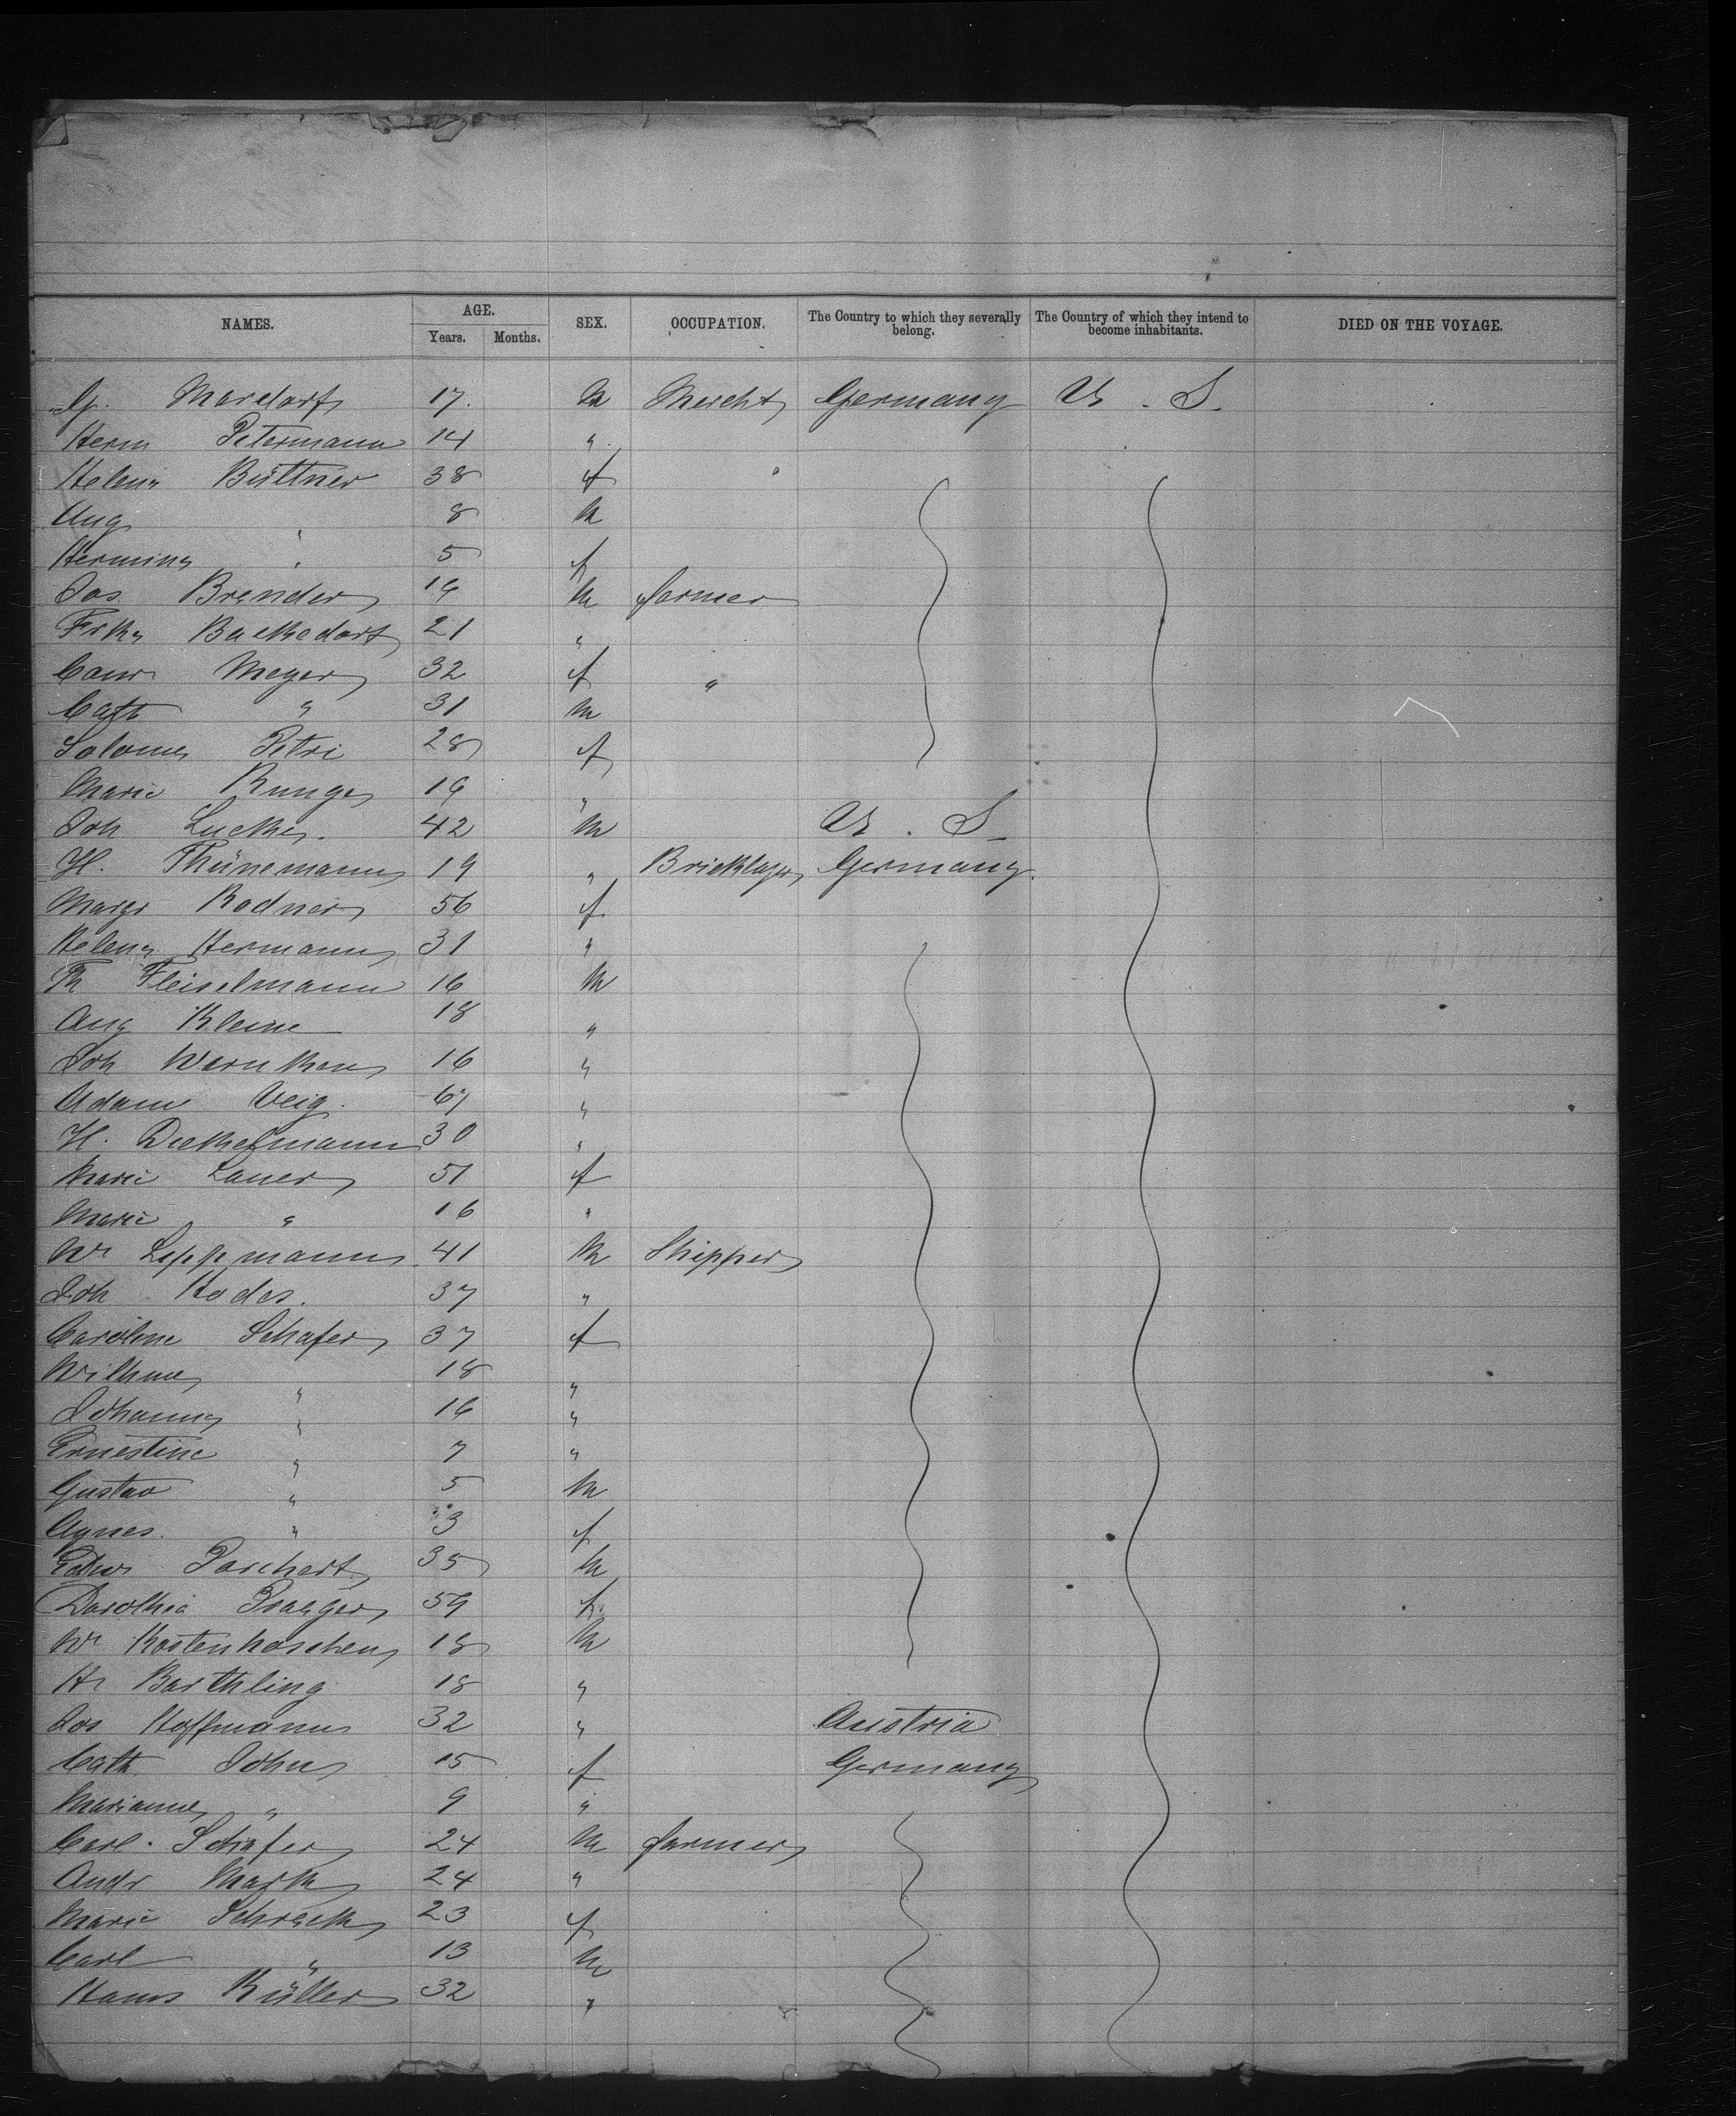 NAMES. AGE. Years. Months. SEX. OCCUPATION. The Country to which they severally belong. The Country of which they intend to become inhabitants. DIED ON THE VOYAGE.
G. Mardorf 17. M Mercht Germany U. S.
Herm Petermann 14 "
Helena Büttner 38 f
Aug " 8 M
Hermina " 5 f
Jos Brender 19 M farmer
Backedorf 21 "
Meyer 32 f "
Cath " 31 M
Salome Petri 28 f
Marie Runge 19 "
Joh Lucke. 42 M U. S.
H. Thünemann 19 " Bricklayer Germany
Margr Rodner 56 f
Helena Hermann 31 "
Th Fleiselmann 16 M
Aug Kleine 18 "
Joh Warnken 16 "
Adam Veig. 67 "
H. Diekelmann 30 "
Marie Lauer 51 f
Marie " 16 "
Wm Lippmann 41 M Shipper
Joh Hodes. 37 "
Caroline Schafer 37 f
Wilhme " 18 "
Johanna " 16 "
Ernestine " 7 "
Gustav " 5 M
Agnes. " 3 f
Edw Paschert 35 M
Dorothia Praeger 59 f.
Wm Kostenhoschen 18 M
Hr Barthling 18 "
Jos Hoffmann 32 " Austria
Cath John 15 f Germany
Marianne " 9 "
Carl. Schafer 24 M farmer
Andr Mark 24 "
Marie Schreck 23 f
Carl " 13 M
Hans Küller 32 "